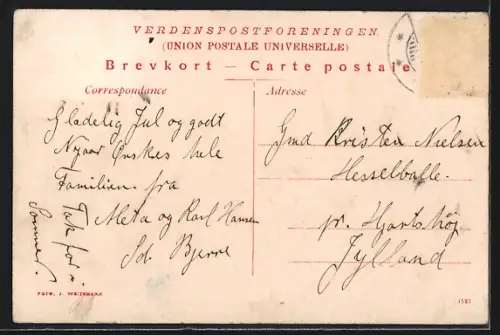 VERDENSPOSTFORENINGEN.
(UNION POSTALE UNIVERSELLE)
Brevkort — Carte postale
Correspondance
Adresse
Glædelig Jul og godt
Nyaar Ønskes hele
Familien fra
Meta og Karl Hansen
Sd. Bjerre
Tak for i
Sommer.
Gmd Kristen Nielsen
Hesselballe.
pr. Hjortshöj
Jylland
FOTO. J. WEITZMANN